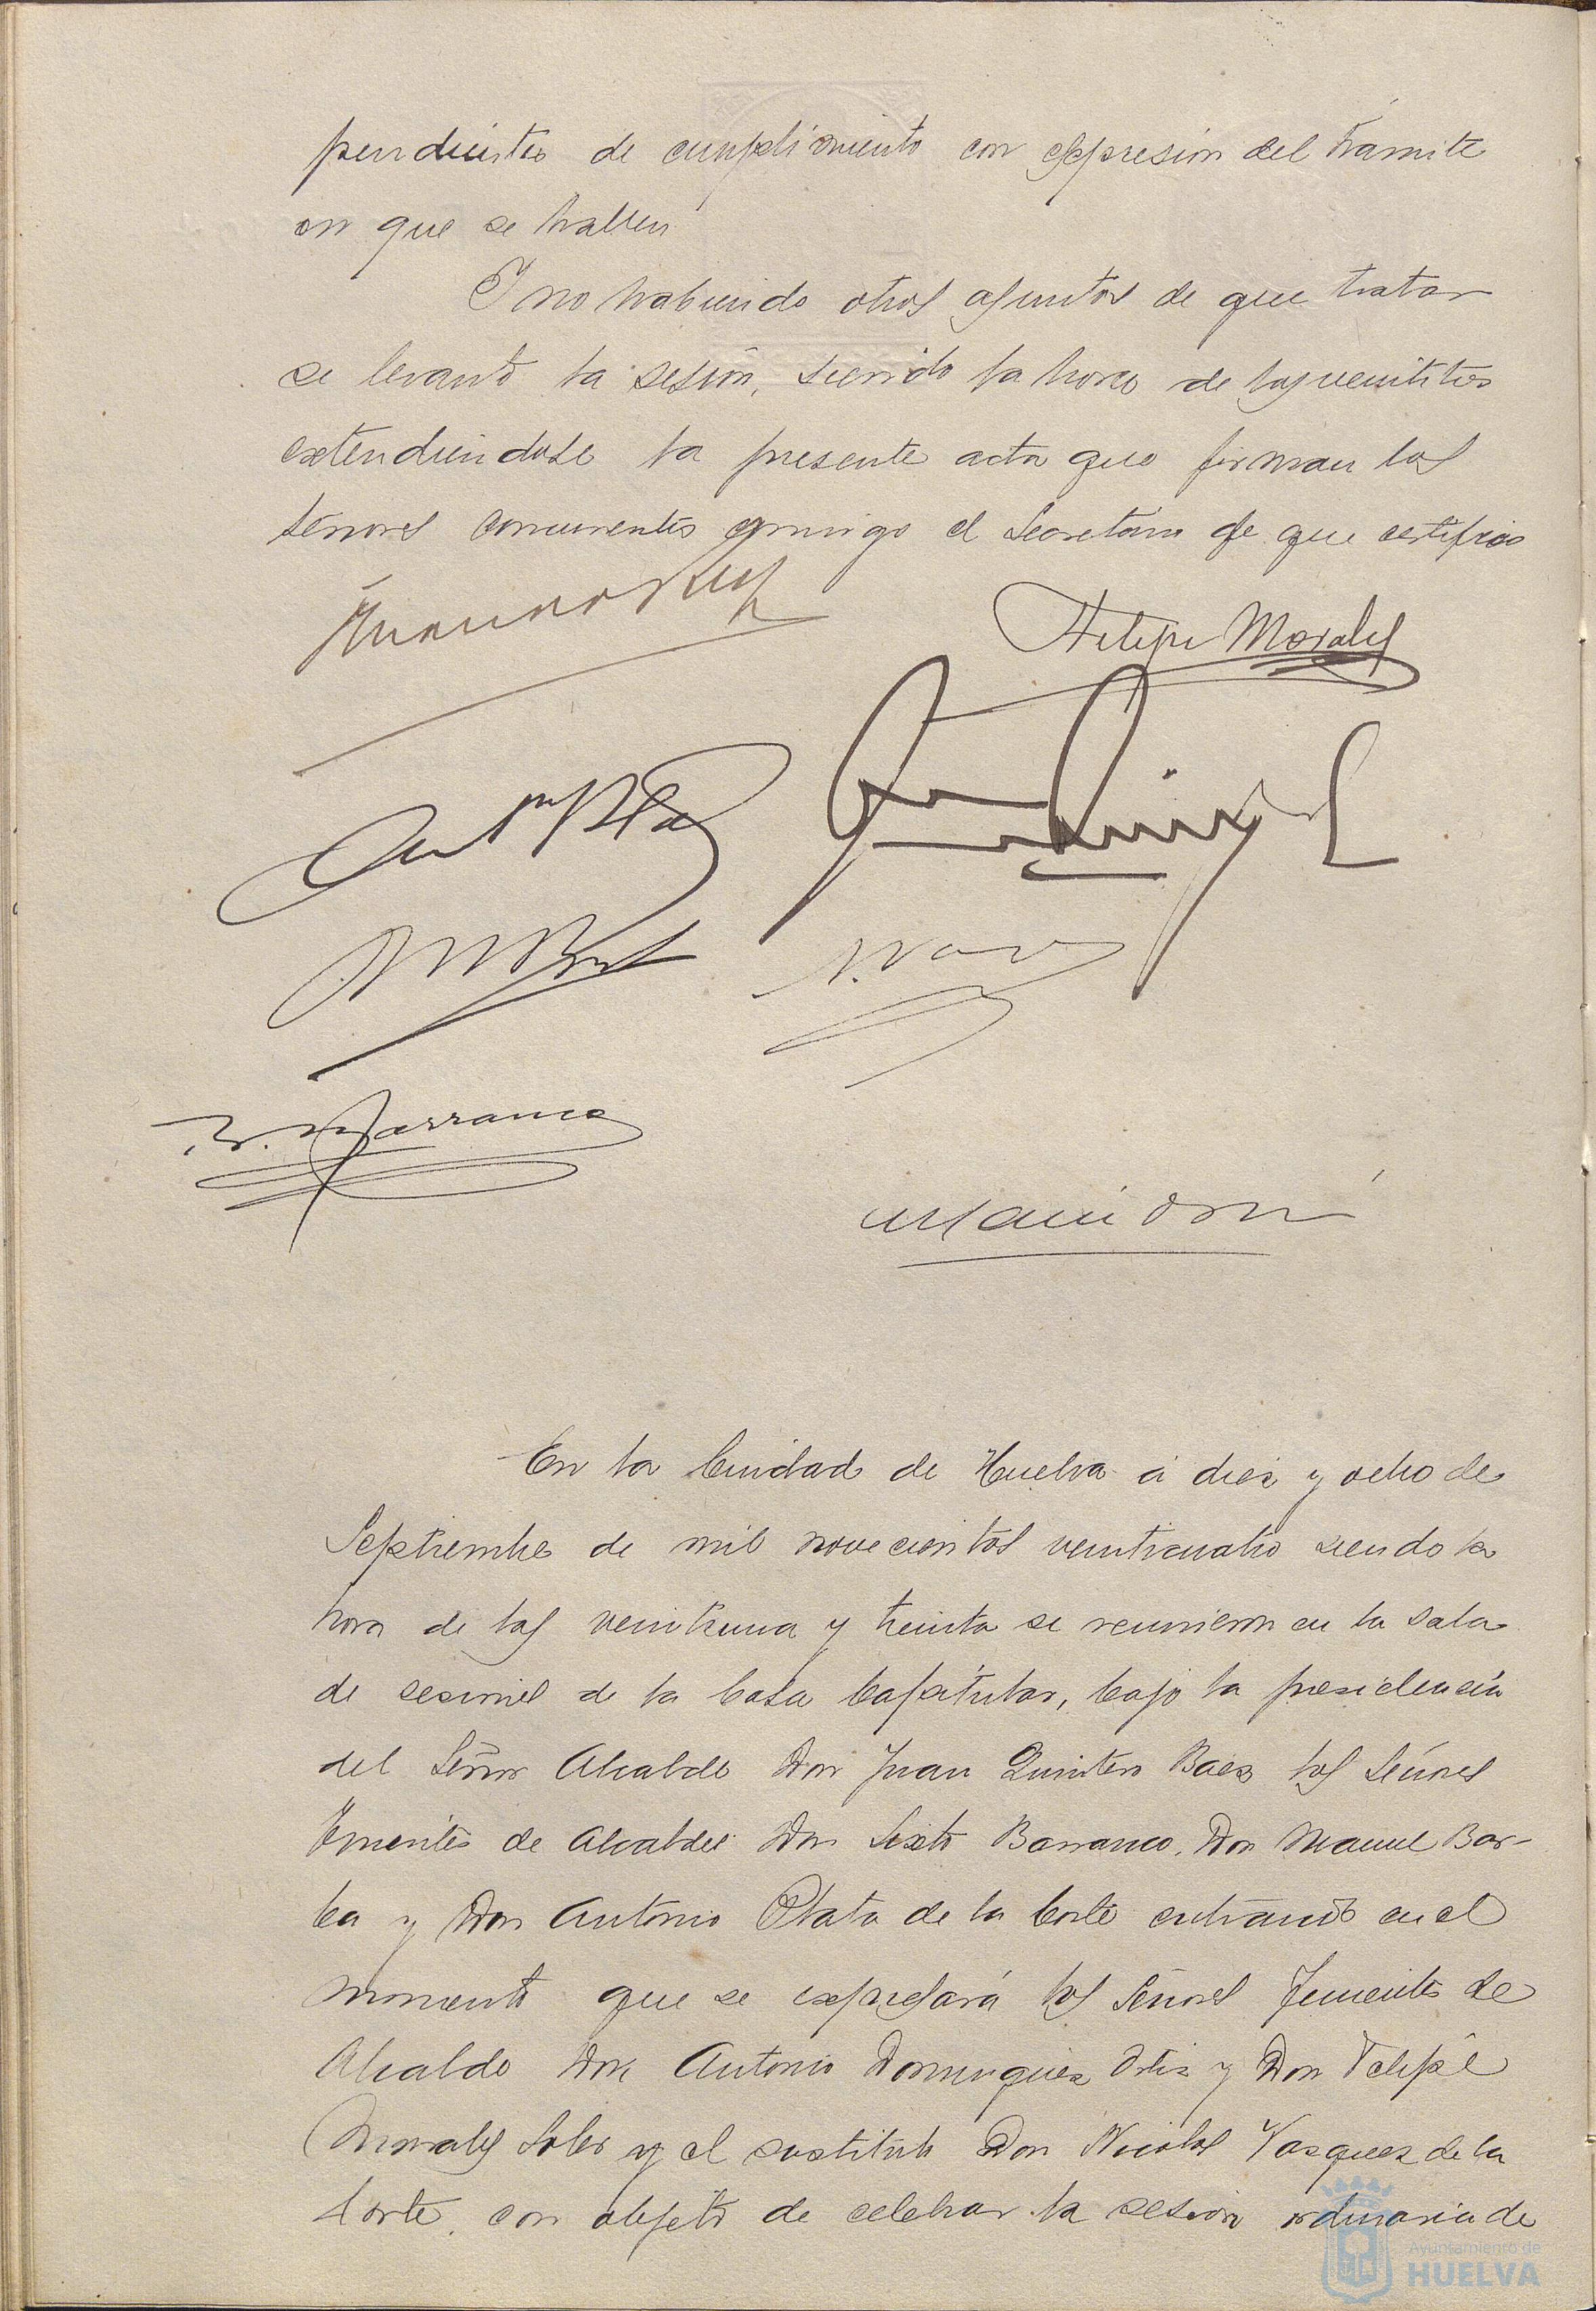 pendientes de cumplimiento con expresión del trámite
en que se hallen
Y no habiendo otros asuntos de que tratar
se levantó la sesión, siendo la hora de las veintitres
extendiéndose la presente acta que firman los
señores concurrentes conmigo el Secretario de que certifico
Felipe Morales
Ant.º Plata
M Barba
N. Vazq
S. Barranco
En la Ciudad de Huelva á diez y ocho de
Septiembre de mil novecientos veinticuatro siendo la
hora de las veintiuna y treinta se reunieron en la sala
de sesiones de la Casa Capitular, bajo la presidencia
del Señor Alcalde Don Juan Quintero Baez los Señores
Tenientes de Alcaldes Don Sixto Barranco, Don Manuel Bar-
ba y Don Antonio Plata de la Corte entrando en el
momento que se expresará los Señores Tenientes de
Alcalde Don Antonio Dominguez Ortiz y Don Felipe
Morales Soler y el sustituto Don Nicolas Vazquez de la
Corte, con objeto de celebrar la sesión ordinaria de
Ayuntamiento de
HUELVA